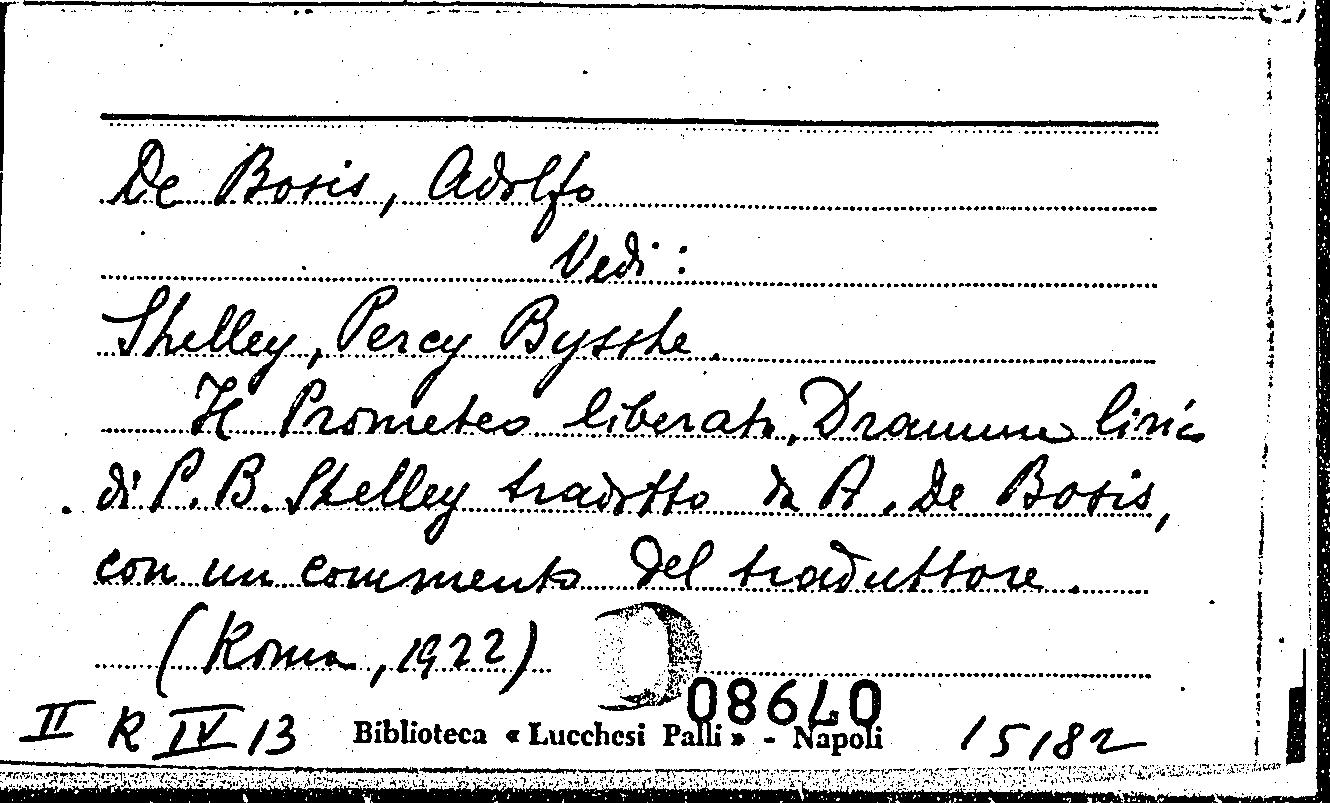 De Bosis, Adolfo
Vedi:
Shelley, Percy Bysshe.
Il Prometeo liberato, Dramma lirico
di P. B. Shelley tradotto da A. De Bosis,
con un commento del traduttore.
(Roma, 1922)
II R IV 13
Biblioteca « Lucchesi Palli » - Napoli
15182